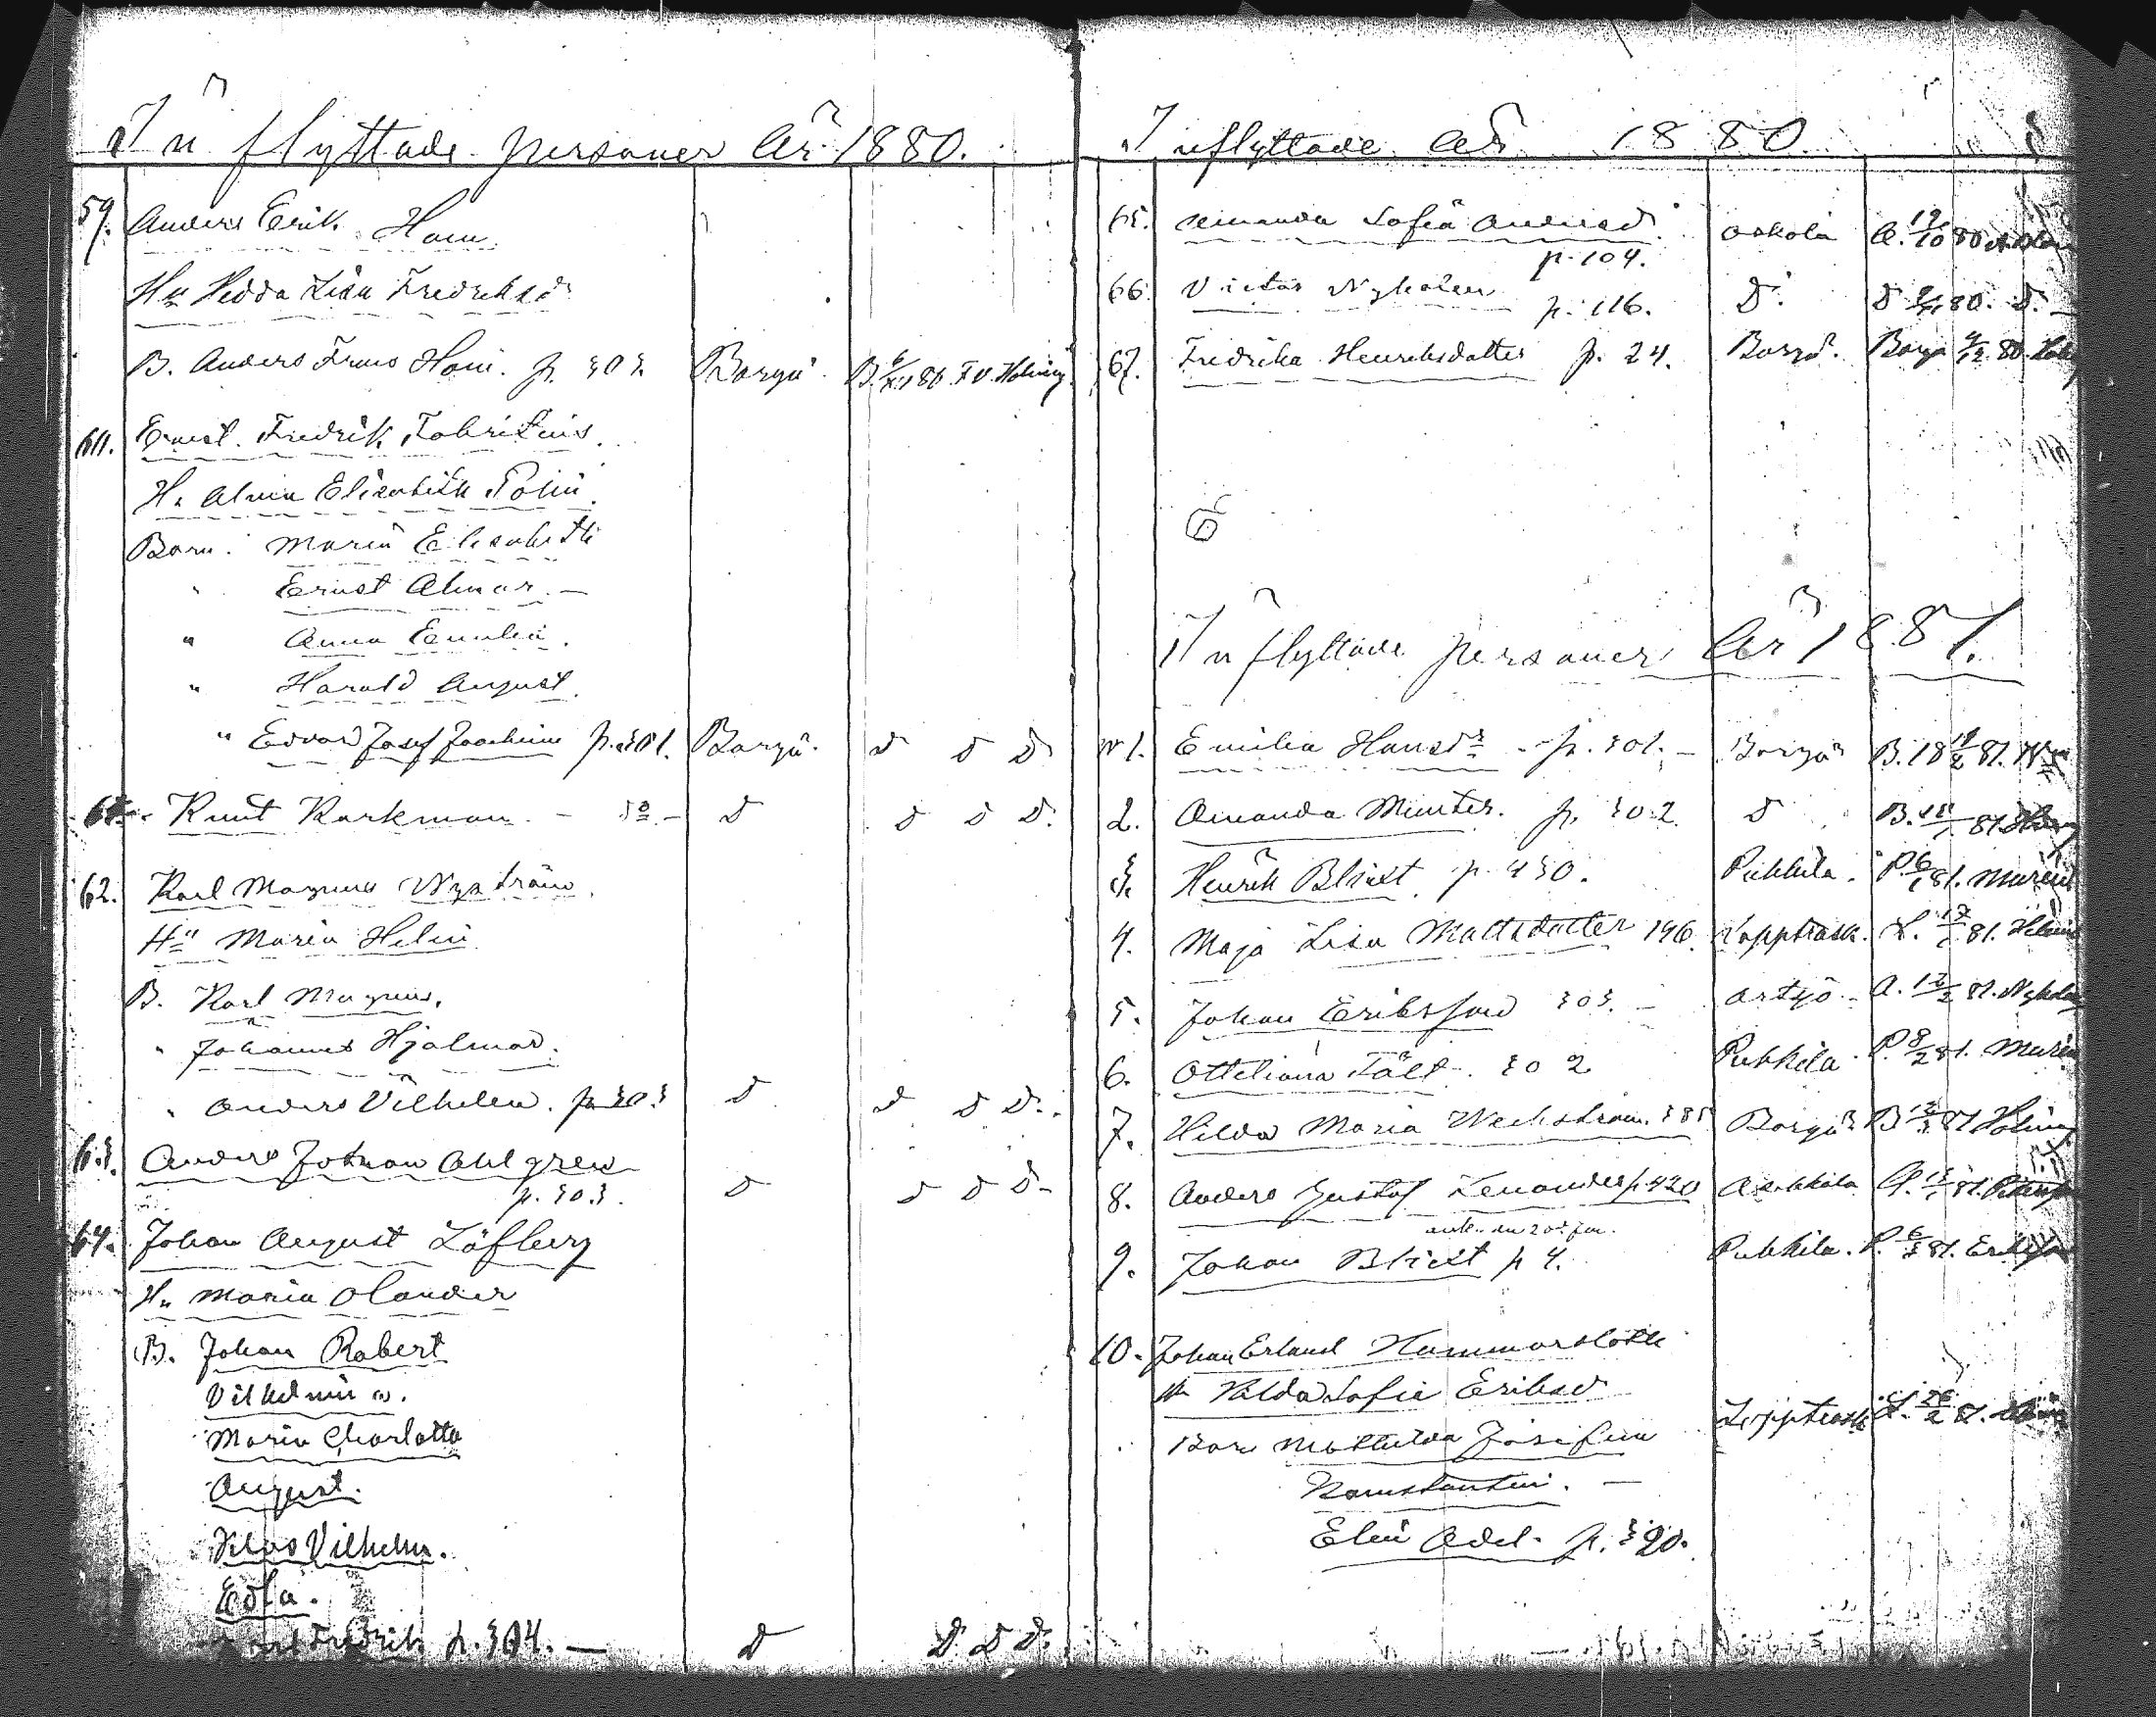 Inflyttade personer År 1880.
59. Anders Erik Hom
Hu Hedda Lisa Fredriksdr
B. Anders Frans Hom. p. 303. Borgå B. 80. F.V. Holming
60. Ernst Fredrik Fabritius.
H. Alma Elisabeth Polin
Barn. Maria Elisabeth
" Ernst Almar. —
" Anna Emilia.
" Harald August.
" Edvard Josef Joachim p. 301. Borgå. D D D
Knut Karkman. — do — D D D D.
62. Karl Magnus Nyström.
Hu Maria Helin
B. Karl Magnus.
" Johannes Hjalmar.
" Anders Vilhelm. p. 303 D D D D.
63. Anders Johan Ahlgren
p. 303. D D D D
64. Johan August Löfberg
Hu Maria Olander
B. Johan Robert
Vilhelmina.
Maria Charlotta
August.
Vilhelm.
Edla.
Fredrik p. 304. — D D D D.
Inflyttade År 1880.
65. Amanda Sofia Andersdr. Askola A. 19/10 80
p. 104.
66. Victor Nyholm p. 116. D. D 80. D. —
67. Fredrika Henriksdotter p. 24. Borgå. Borgå 4/12 80.
Inflyttade personer År 1881.
N 1. Emilia Hansdr — p. 301. — Borgå B. 18 81.
2. Amanda Munter. p. 302. D B. 81.
3. Henrik Blixt. p. 430. Pukkila. P. 6/1 81. Murén
4. Maja Lisa Mattsdotter 146. Lappträsk. L. 17/1 81.
5. Johan Eriksson 303. — Artsjö. A. 12/2 81.
6. Otteliana Tält. 302 Pukkila. P. 8/2 81. Murén
7. Hilda Maria Weckström. 385 Borgå B 81 Holming
8. Anders Gustaf Lenander p. 420 Asikkala A. 81.
ank. den 20de Jan.
9. Johan Blixt p 4. Pukkila. P. 81.
10. Johan Erland Hammarslätt
Hu Hilda Sofia Eriksdr
Barn Mathilda Josefina Lappträsk L. 26/2 81.
Konstantin. —
Elin Adel. p. 320.